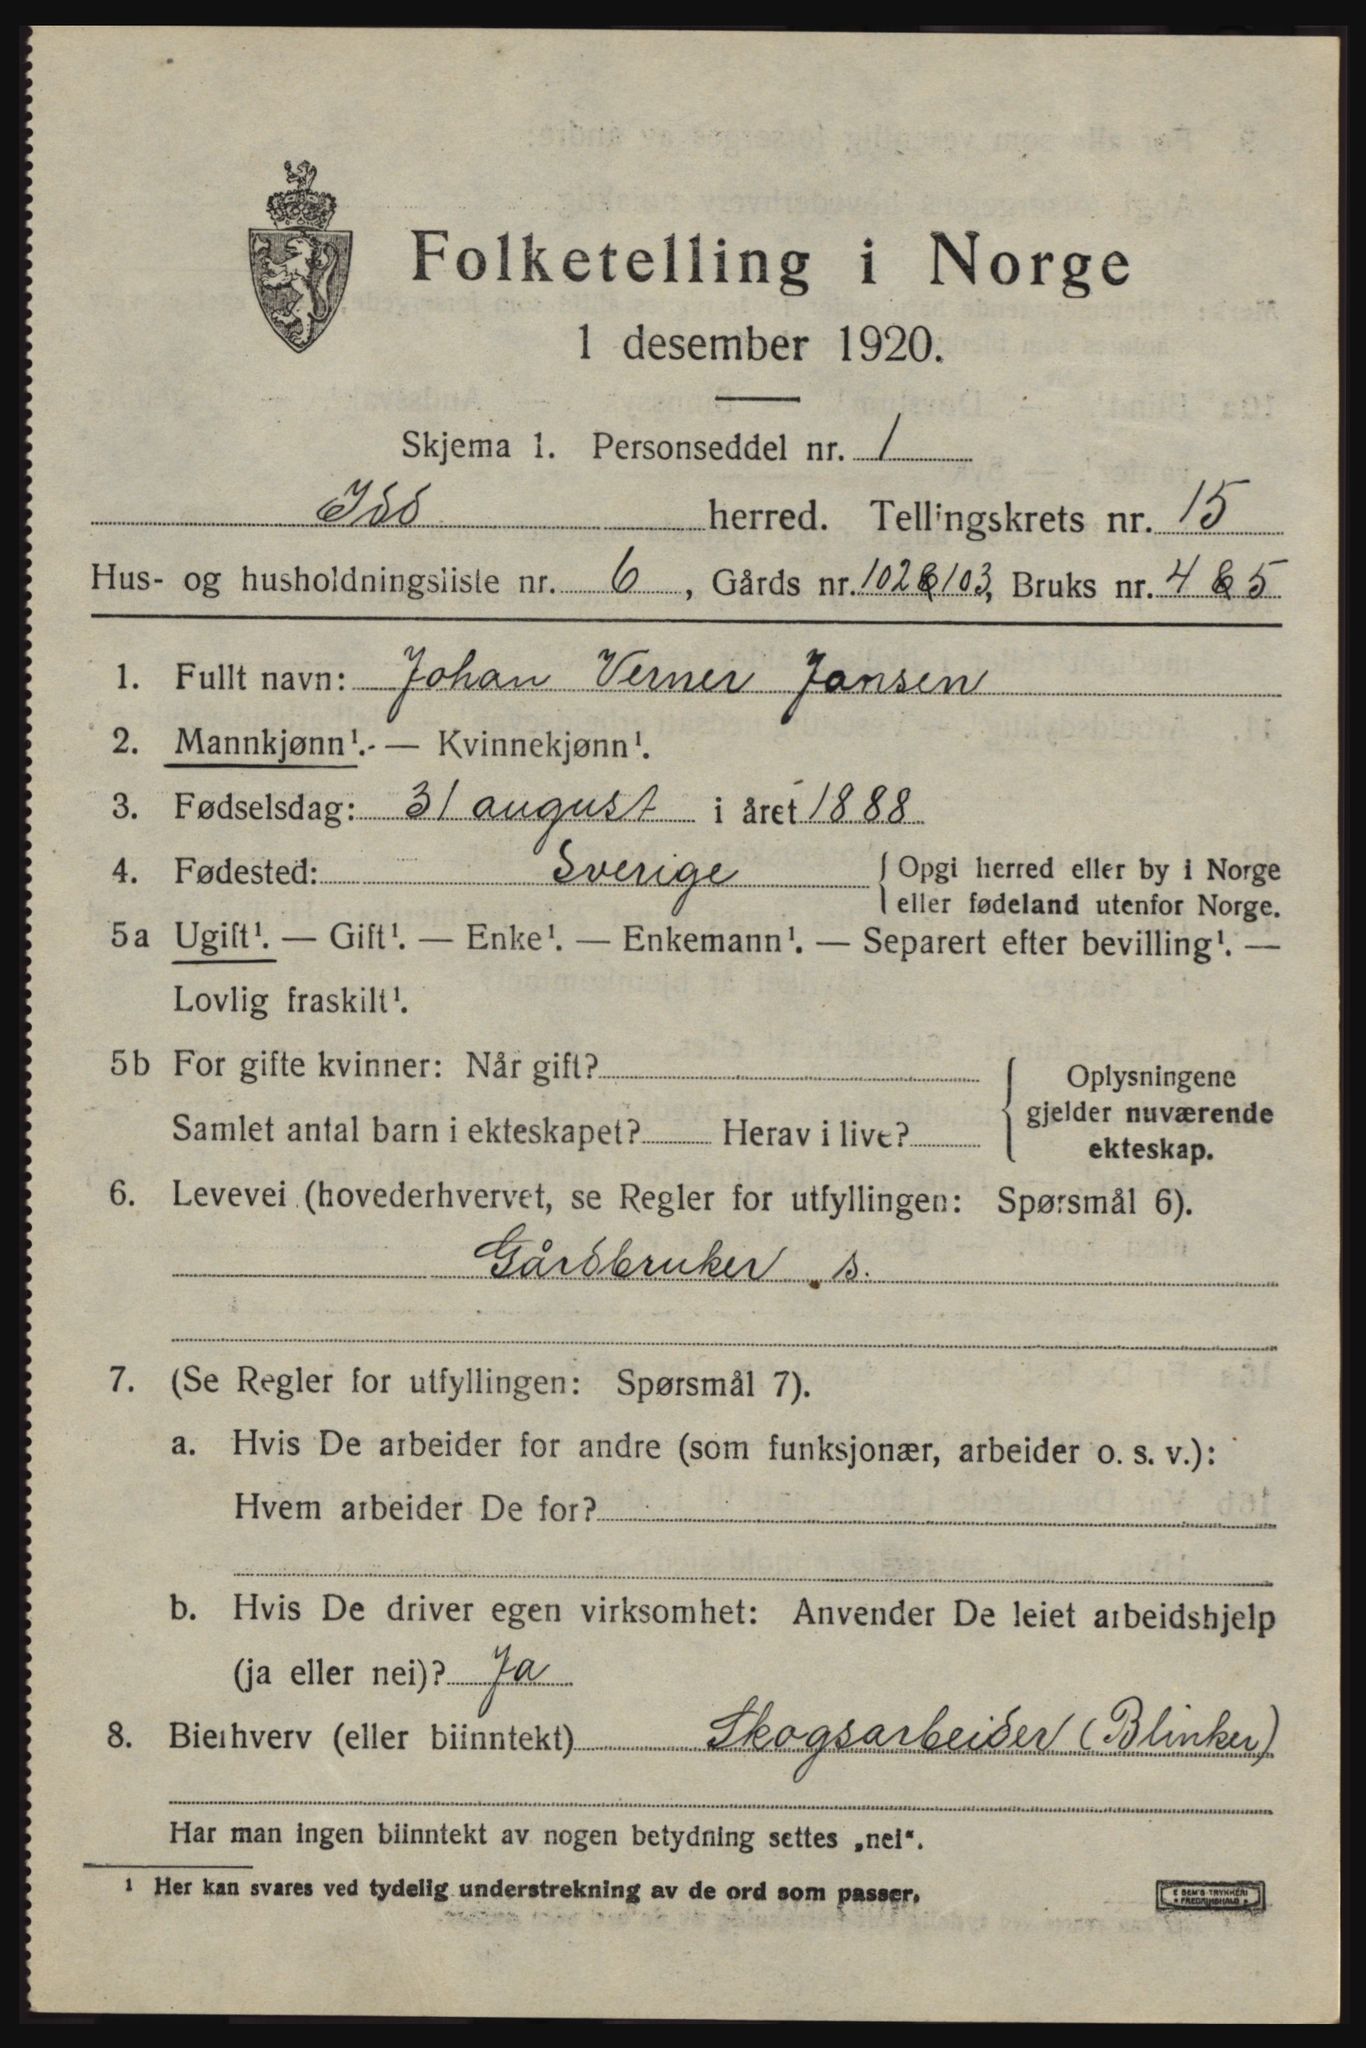 Folketelling i Norge
1 desember 1920.
Skjema 1. Personseddel nr. 1
Idd herred. Tellingskrets nr. 15
Hus- og husholdningsliste nr. 6, Gårds nr. 102&103, Bruks nr. 4&5
1. Fullt navn: Johan Verner Jansen
2. Mannkjønn¹. — Kvinnekjønn¹.
3. Fødselsdag: 31 august i året 1888
4. Fødested: Sverige { Opgi herred eller by i Norge
eller fødeland utenfor Norge.
5a Ugift¹. — Gift¹. — Enke¹. — Enkemann¹. — Separert efter bevilling¹. —
Lovlig fraskilt¹.
5b For gifte kvinner: Når gift?
Samlet antal barn i ekteskapet? Herav i live?
Oplysningene
gjelder nuværende
ekteskap.
6. Levevei (hovederhvervet, se Regler for utfyllingen: Spørsmål 6).
Gårdbruker s.
7. (Se Regler for utfyllingen: Spørsmål 7).
a. Hvis De arbeider for andre (som funksjonær, arbeider o. s. v.):
Hvem arbeider De for?
b. Hvis De driver egen virksomhet: Anvender De leiet arbeidshjelp
(ja eller nei)? Ja
8. Bierhverv (eller biinntekt) Skogsarbeider (Blinker)
Har man ingen biinntekt av nogen betydning settes „nei“.
¹ Her kan svares ved tydelig understrekning av de ord som passer.
E SEM'S TRYKKERI
FREDRIKSHALD